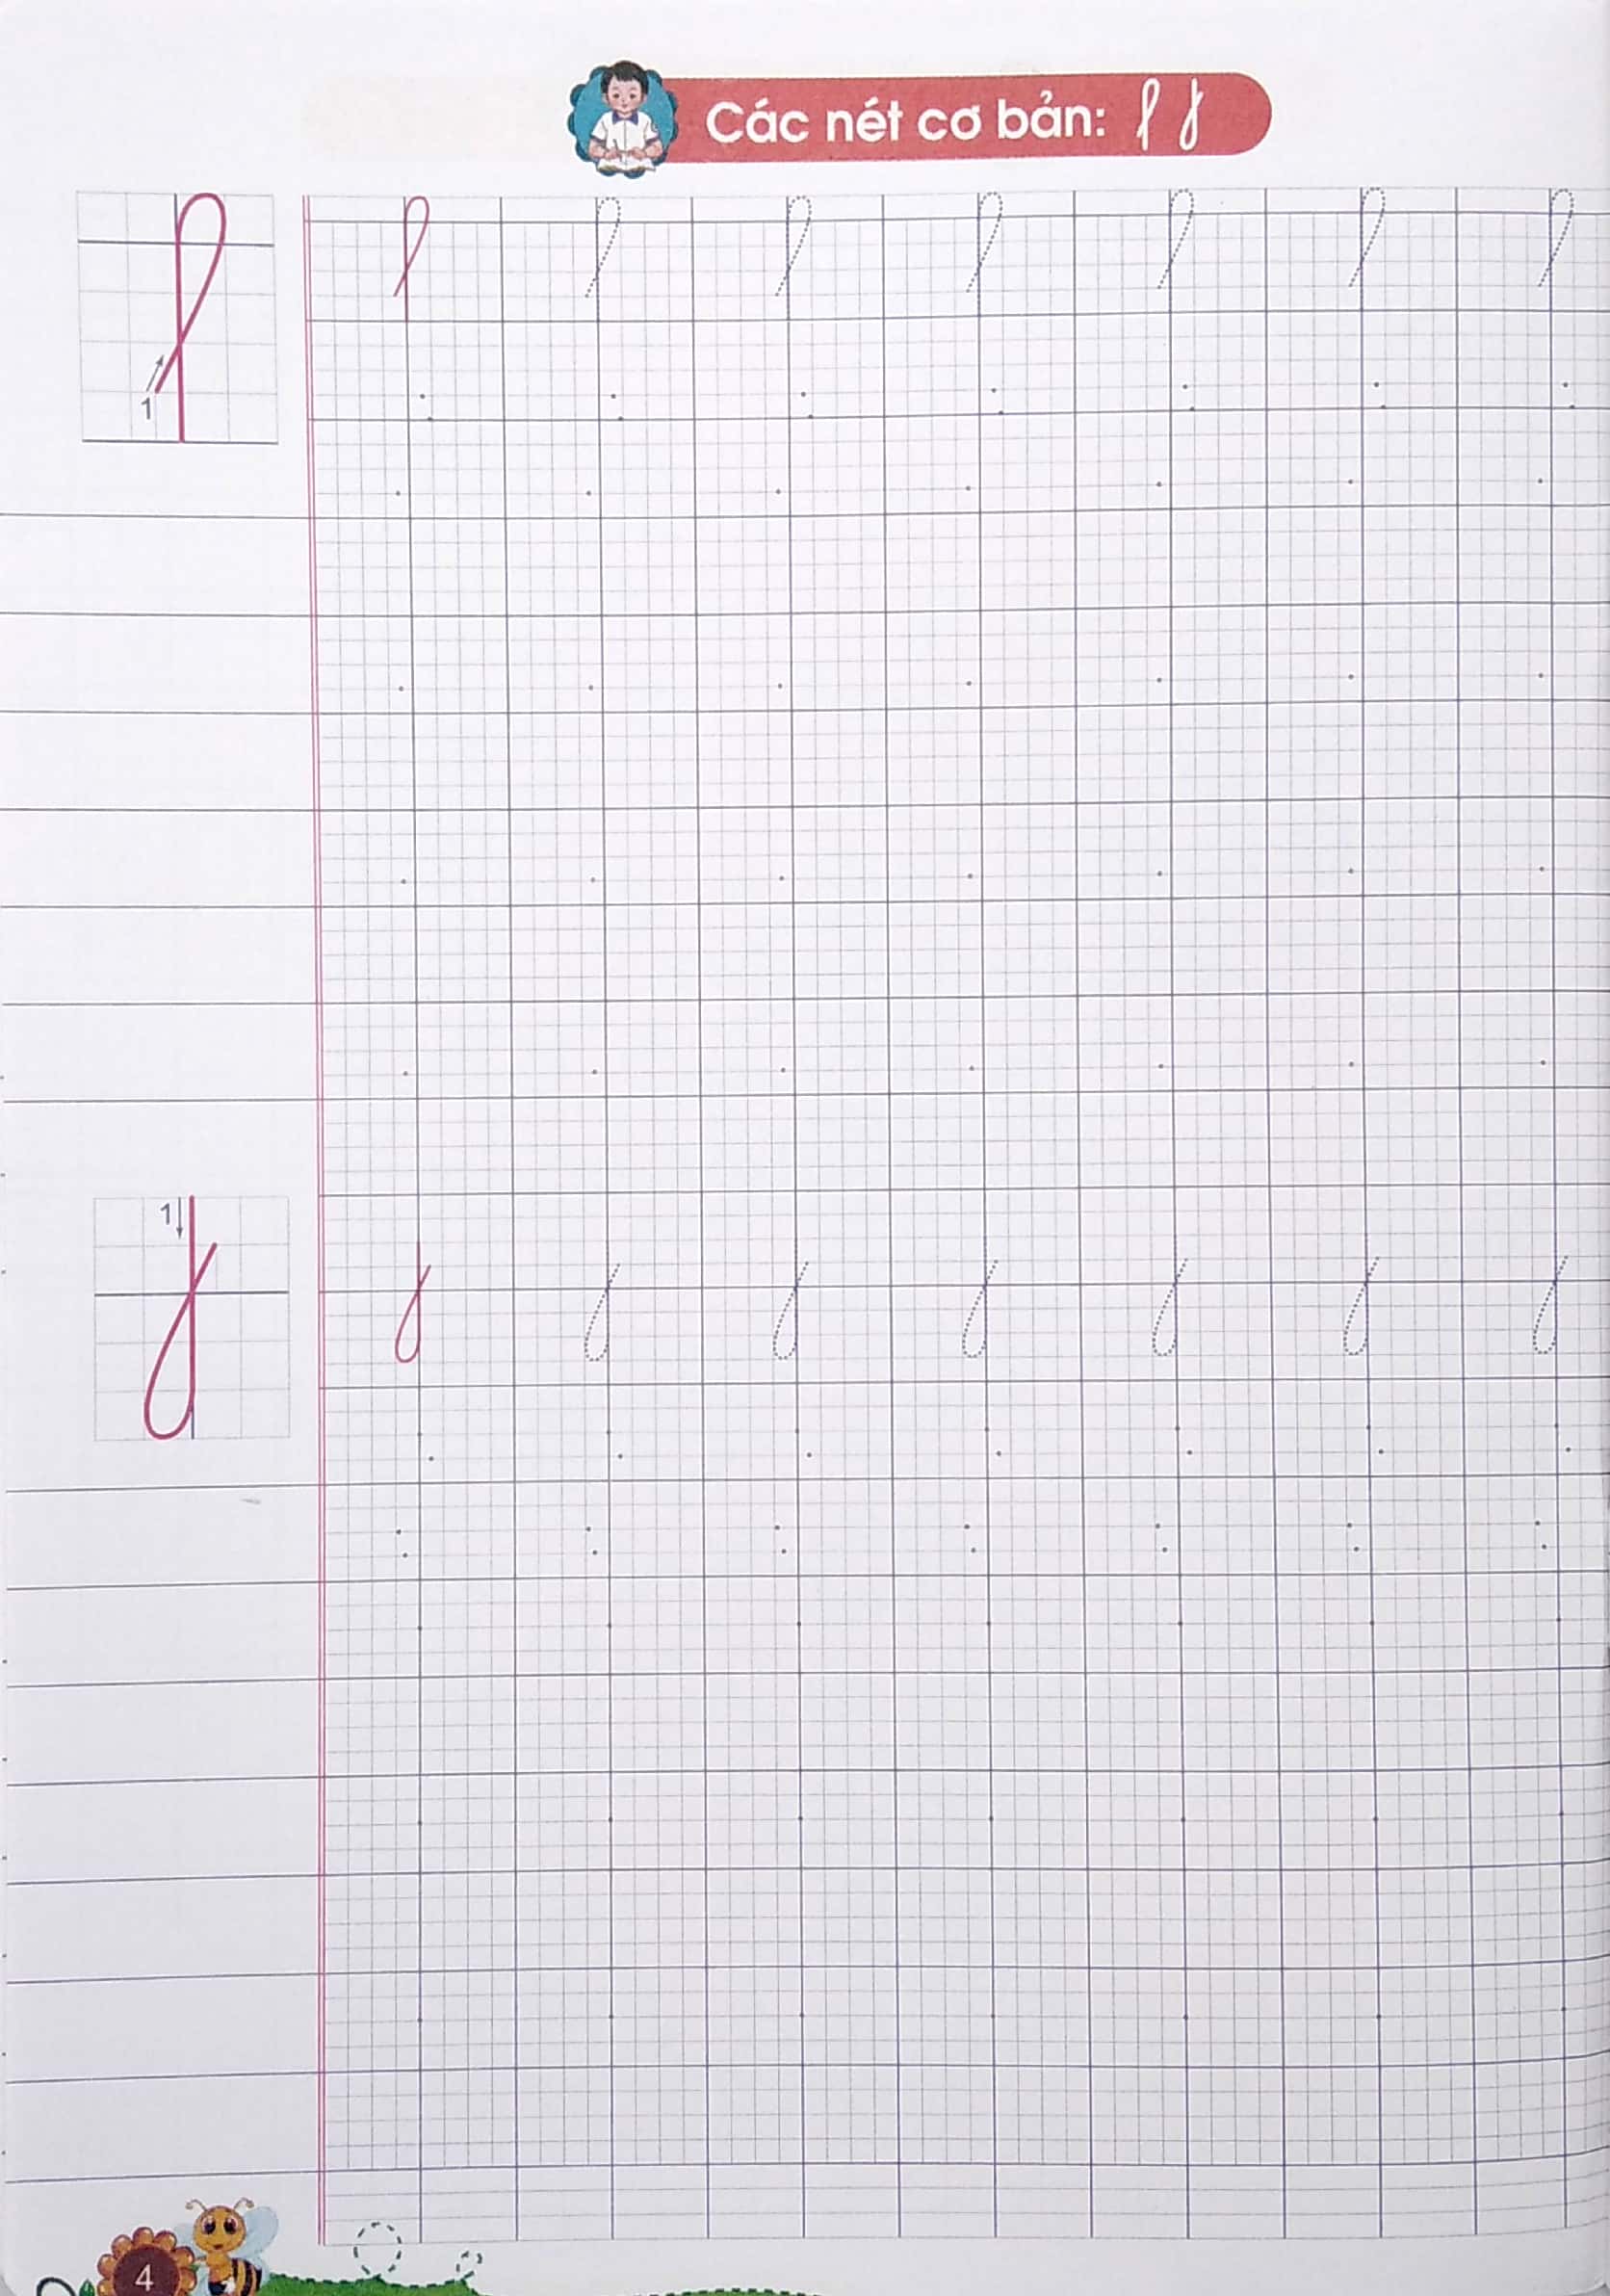 Các nét cơ bản:
1
1
4